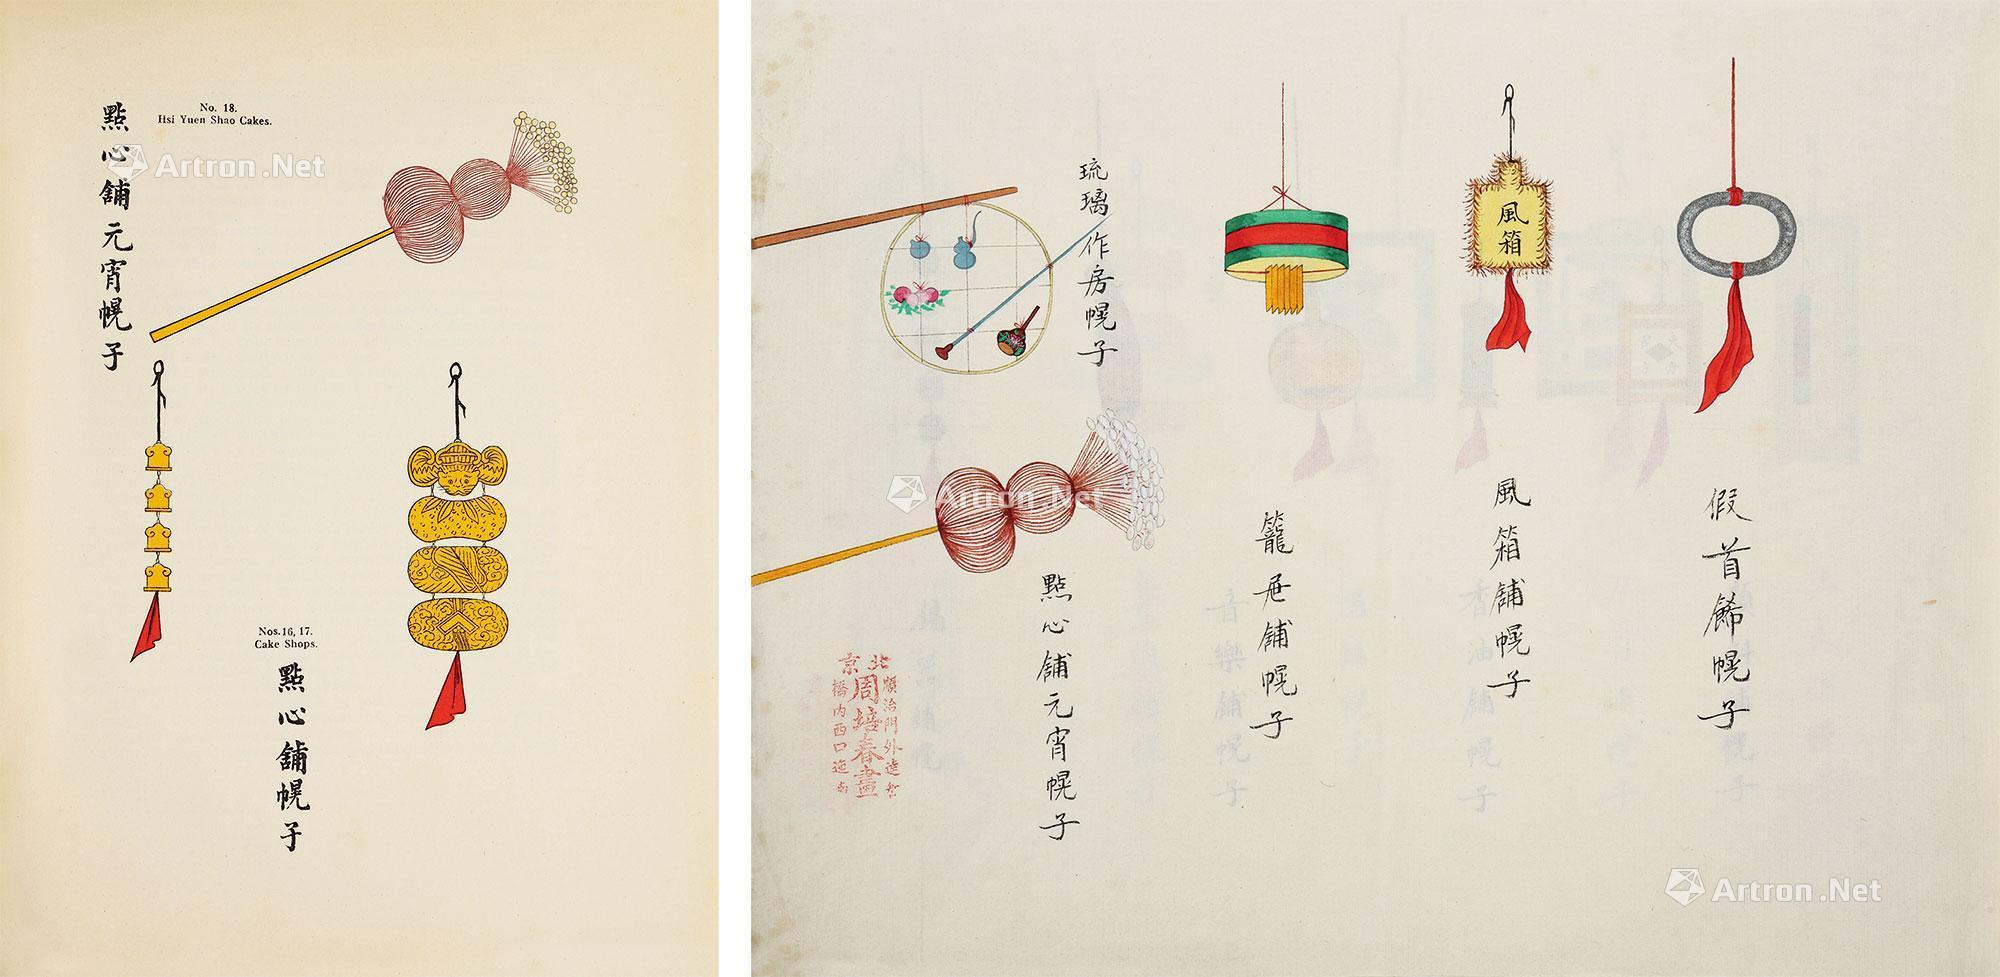 No. 18.
Hsi Yuen Shao Cakes.
點心舖元宵幌子
Artron.Net
Nos.16, 17.
Cake Shops.
點心舖幌子
假首餙幌子
風箱
風箱舖幌子
籠屜舖幌子
琉璃作房幌子
點心舖元宵幌子
Artron.Net
北京
順治門外達智
周培春畫
橋內西口迤南
Artron.Net